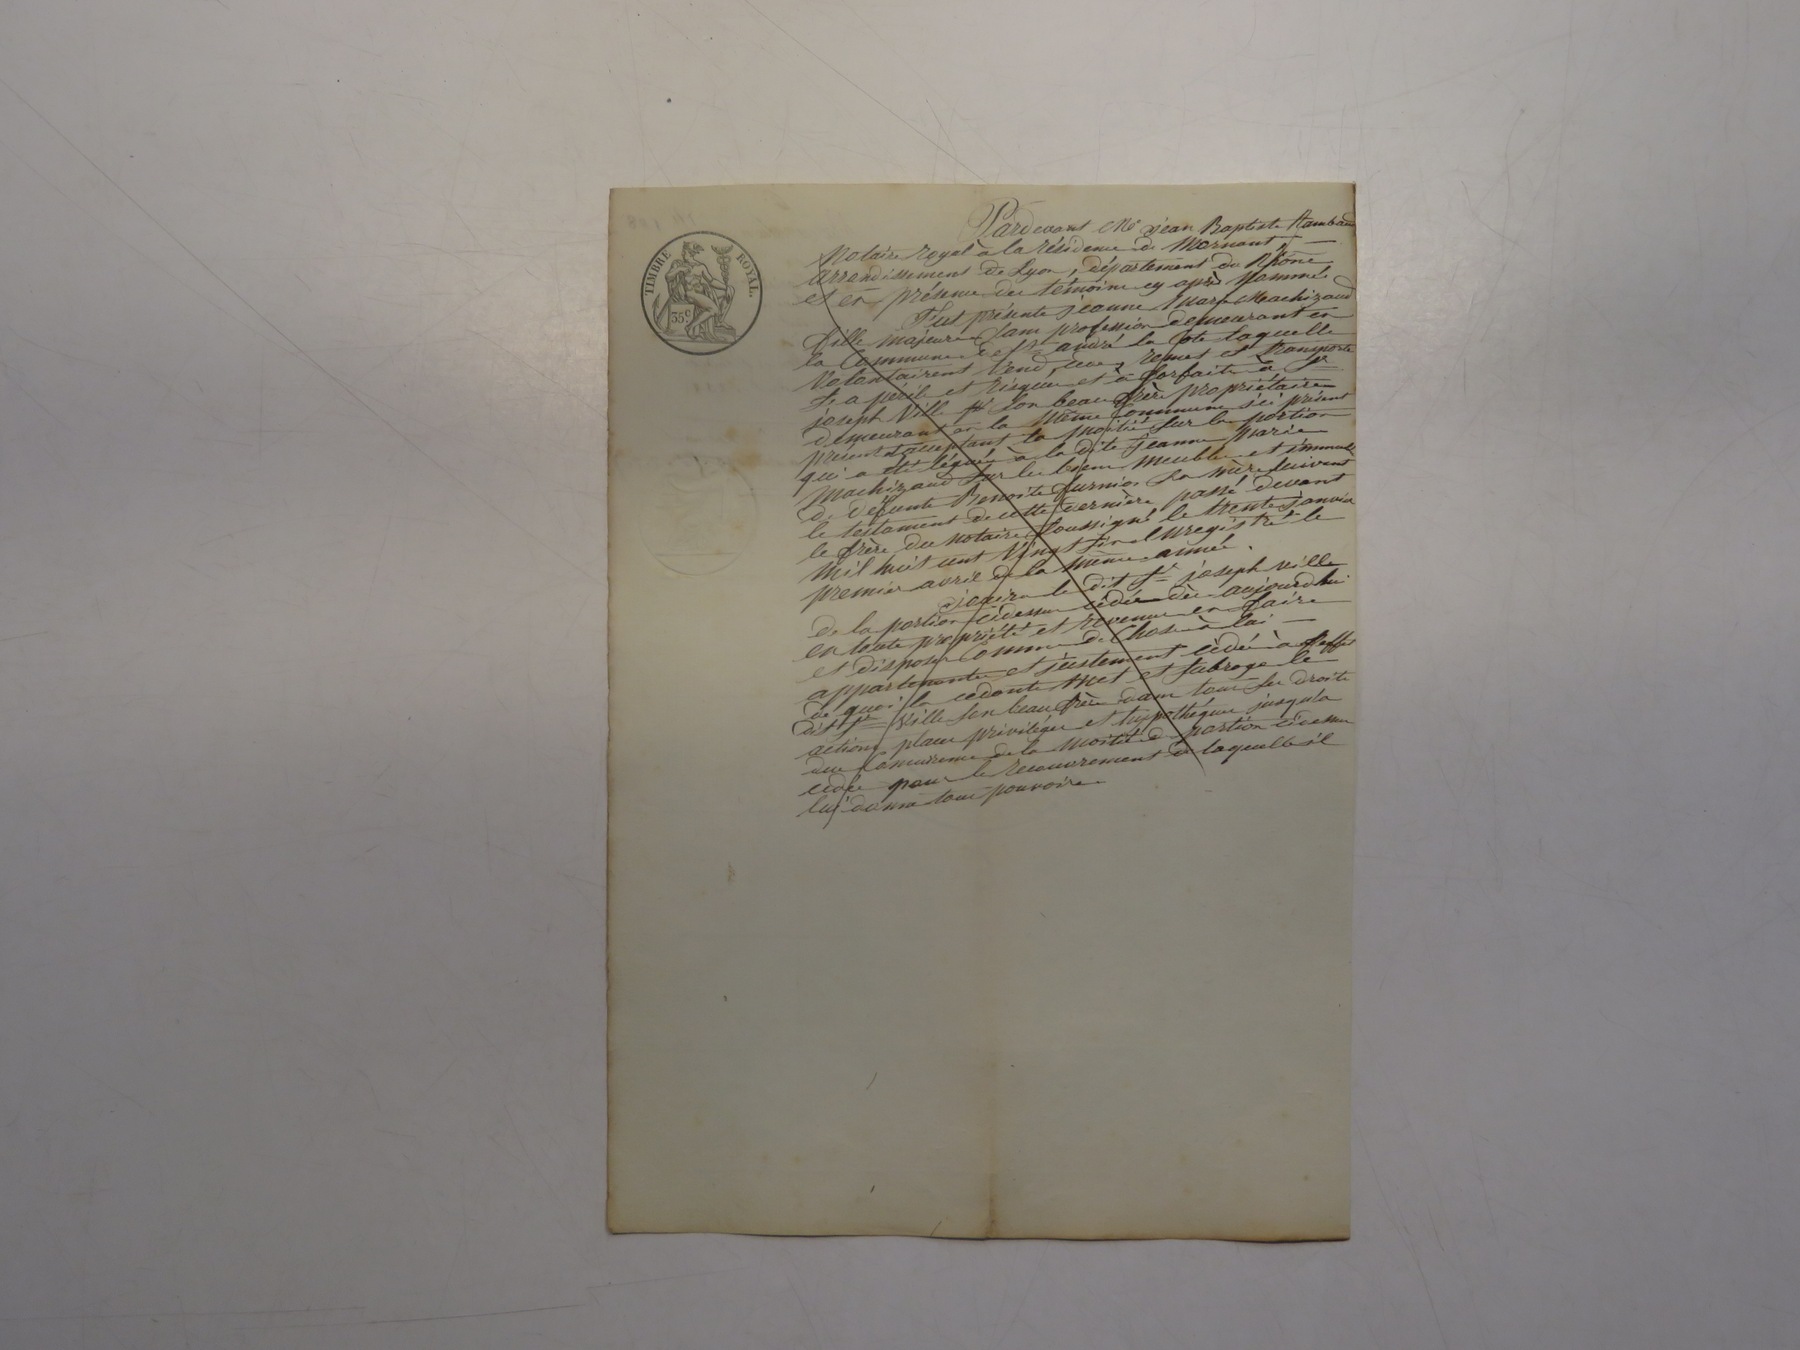 TIMBRE ROYAL.
35c
Pardevant Me jean Baptiste Rambaud
Notaire royal à la résidence de Mornant
arrondissement de Lyon, département du Rhône
et en présence des témoins cy après nommés
Fut présente jeanne Marie Machizaud
fille majeure sans profession demeurant en
la Commune de St andré la Cote laquelle
Volontairement Vend, cede, remet et transporte
à périls et risques et à forfait à Sr
joseph Ville son beau frère propriétaire
demeurant en la même Commune ici présent
présent acceptant la moitié sur la portion
qui a été léguée à la dite jeanne Marie
Machizaud sur les biens meubles et immeubles
de défunte Benoite furnion sa mère suivant
le testament de cette dernière passé devant
le frère du notaire soussigné le trente janvier
mil huit cent vingt enregistré le
premier avril de la même année.
le dit Sr joseph Ville
de la portion cidessus cédée dès aujourdhui
en toute propriété et revenus en faire
et disposer comme de chose à lui
appartenante et justement cédée à l'effet
de quoi la cedante met et subroge le
dit Sr Ville son beau frère dans tous ses droits
actions, places privilèges et hypothéques jusqu'a
due concurrence de la moitié de portion cidessus
cédée pour le recouvrement de laquelle il
lui donne tous pouvoirs